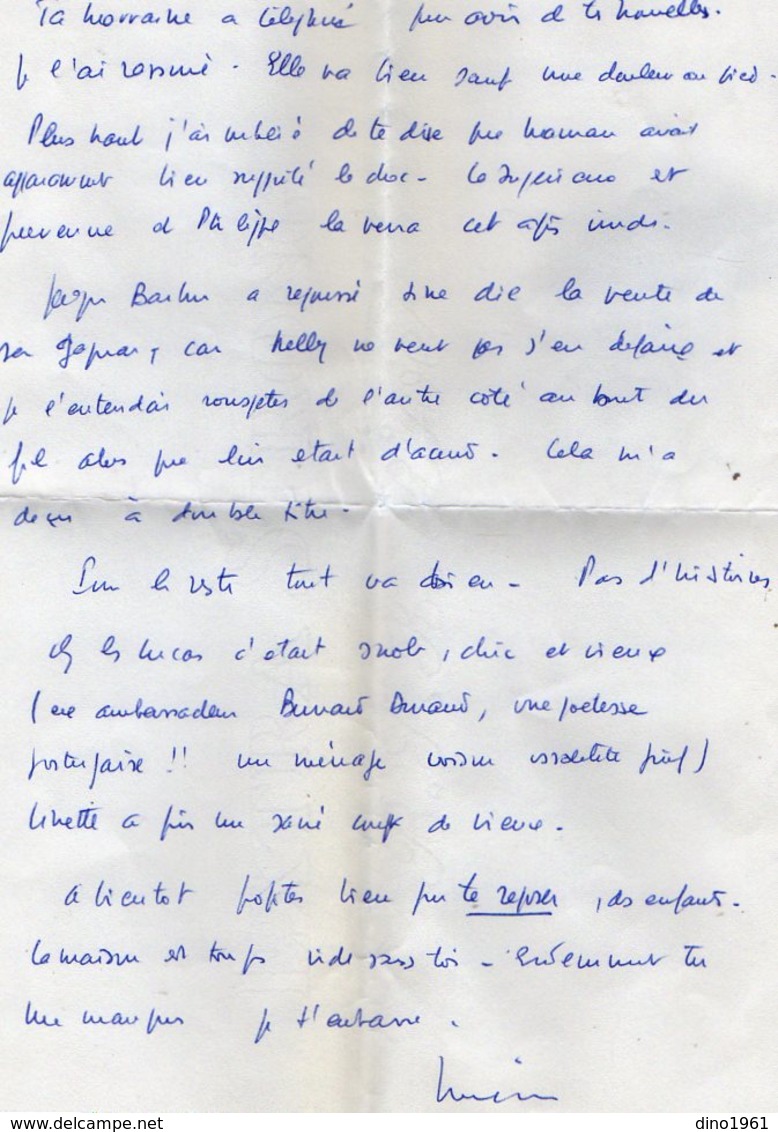 Ta marraine a téléphoné pour avoir de tes nouvelles.
Je l'ai rassuré. Elle va bien sauf une douleur au pied.
Plus haut j'ai oublié de te dire que maman avait
apparemment bien supporté le choc. La
de Philippe la verra cet après midi.
a repoussé sine die la vente de
sa Jaguar, car Nelly ne veut pas s'en défaire et
je l'entendais rouspéter de l'autre côté au bout du
fil alors que lui était d'accord. Cela m'a
déçu à double titre.
Pour le reste tout va bien. Pas d'histoires
Chez les Lucas c'était snob, chic et vieux
(ex ambassadeur Bernard Durand, une poétesse
portugaise !! un ménage voisin)
Linette a pris un sacré coup de vieux.
A bientôt profites bien pour te reposer, des enfants.
La maison est trop vide sans toi. Evidemment tu
me manques je t'embrasse.